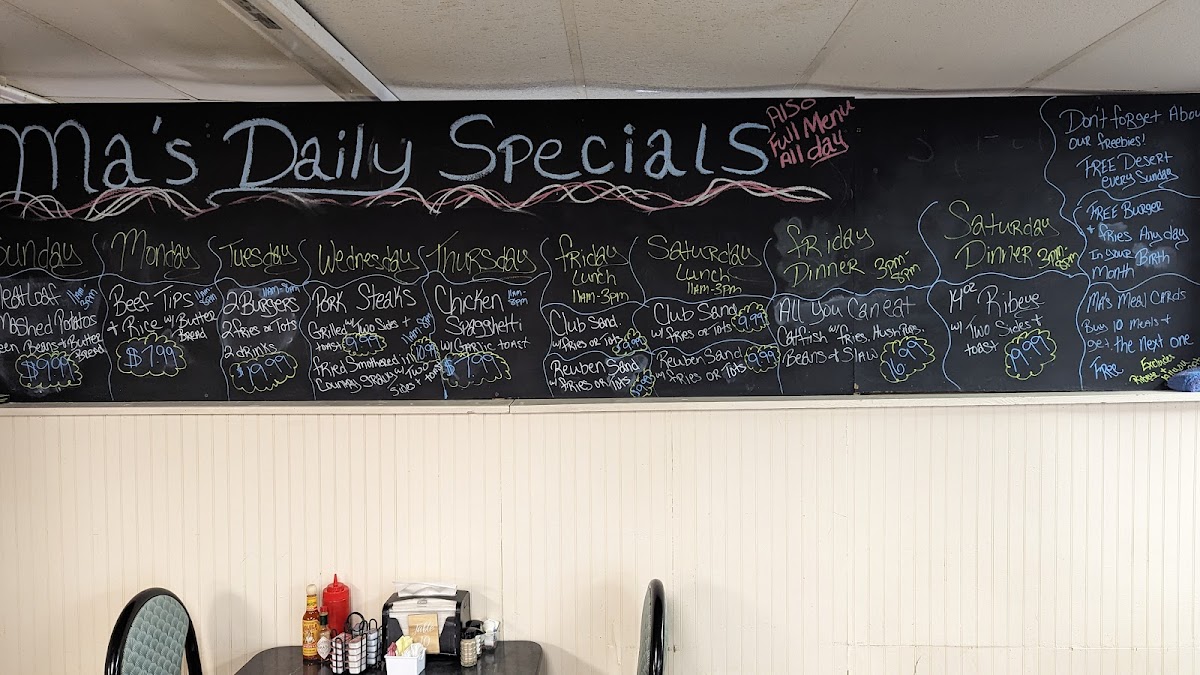 Ma's Daily Specials
Also
Full Menu
All day
Sunday
Meatloaf 11am
Mashed Potatos
Green Beans & Butter
Bread
$9.99
Monday
Beef Tips
& Rice w/ Butter
Bread
$7.99
Tuesday
2 Burgers
2 fries or Tots
2 drinks
$19.99
Wednesday
Pork Steaks
Grilled w/ Two Sides &
toast 9.99
Fried Smothered in 10.99
Country Gravy w/ Two
Sides & toast
11am-8pm
Thursday
Chicken 11am-
Spagghetti
w/ Garlic toast
$7.99
Friday
Lunch
11am-3pm
Club Sand
w/ fries or Tots 9.99
Reuben Sand
w/ fries or Tots 9.99
Saturday
Lunch
11am-3pm
Club Sand
w/ fries or Tots 9.99
Reuben Sand 9.99
w/ fries or Tots
friday
Dinner 3pm-
8pm
All You Can eat
Catfish w/ fries, Hush Pups,
Beans & Slaw 16.99
Saturday
Dinner 3pm-
8pm
14oz Ribeye
w/ Two Sides &
toast 19.99
Don't forget Abou
our freebies!
FREE Desert
every Sunday
FREE Burger
& fries Any day
In your Birth
Month
Ma's Meal Cards
Buy 10 Meals &
get the Next one
Free